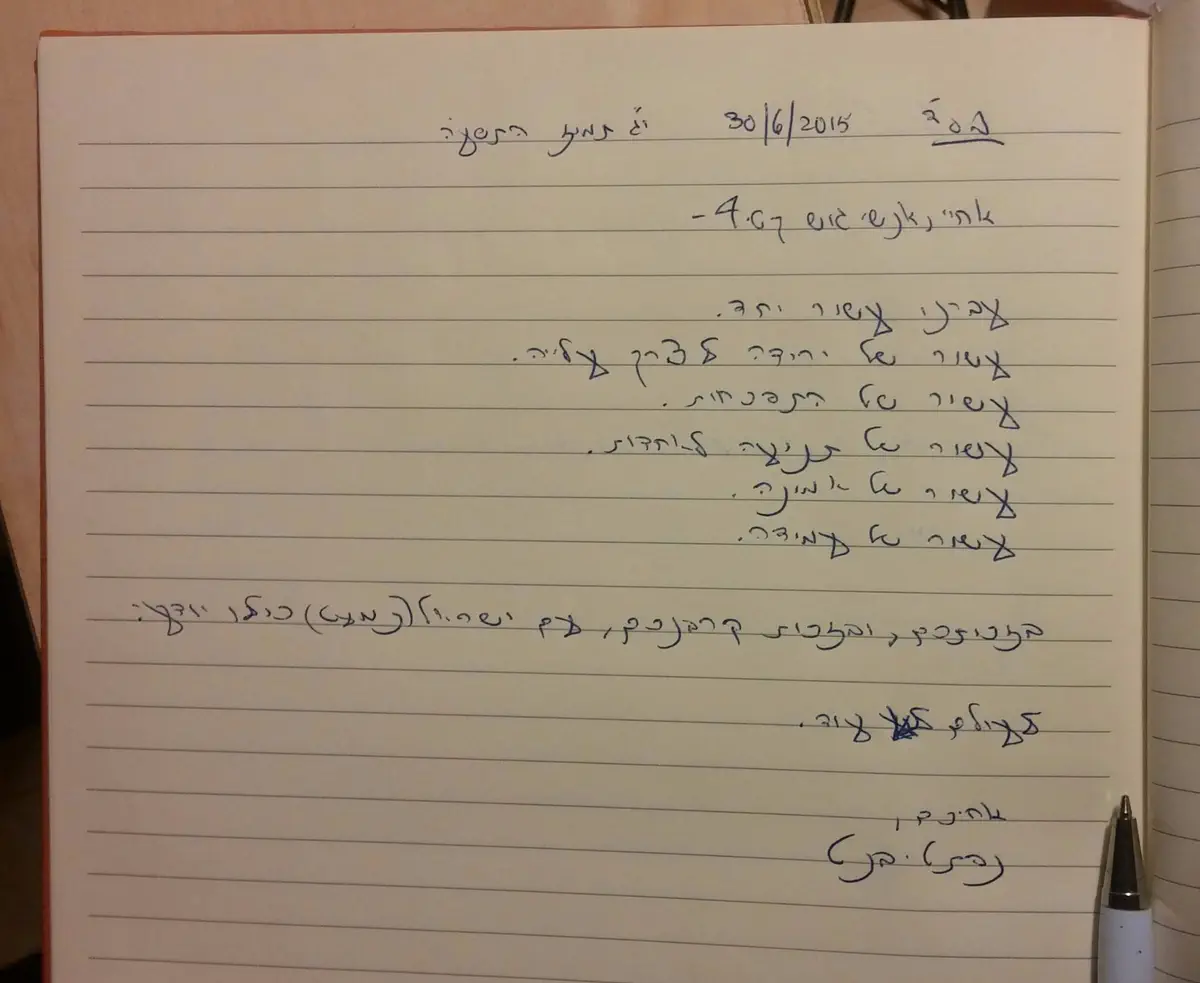 בס"ד 30/6/2015 י"ג תמוז התשע"ה
אחיי, אנשי גוש קטיף -
עברנו עשור יחד.
עשור של ירידה לצורך עלייה.
עשור של התפכחות.
עשור של תביעה לאחדות.
עשור של אמונה.
עשור של עמידה.
בזכותכם, ובזכות קרבנכם, עם ישראל (כמעט) כולו יודע:
לעולם לא עוד.
אחיכם,
נפתלי בנט